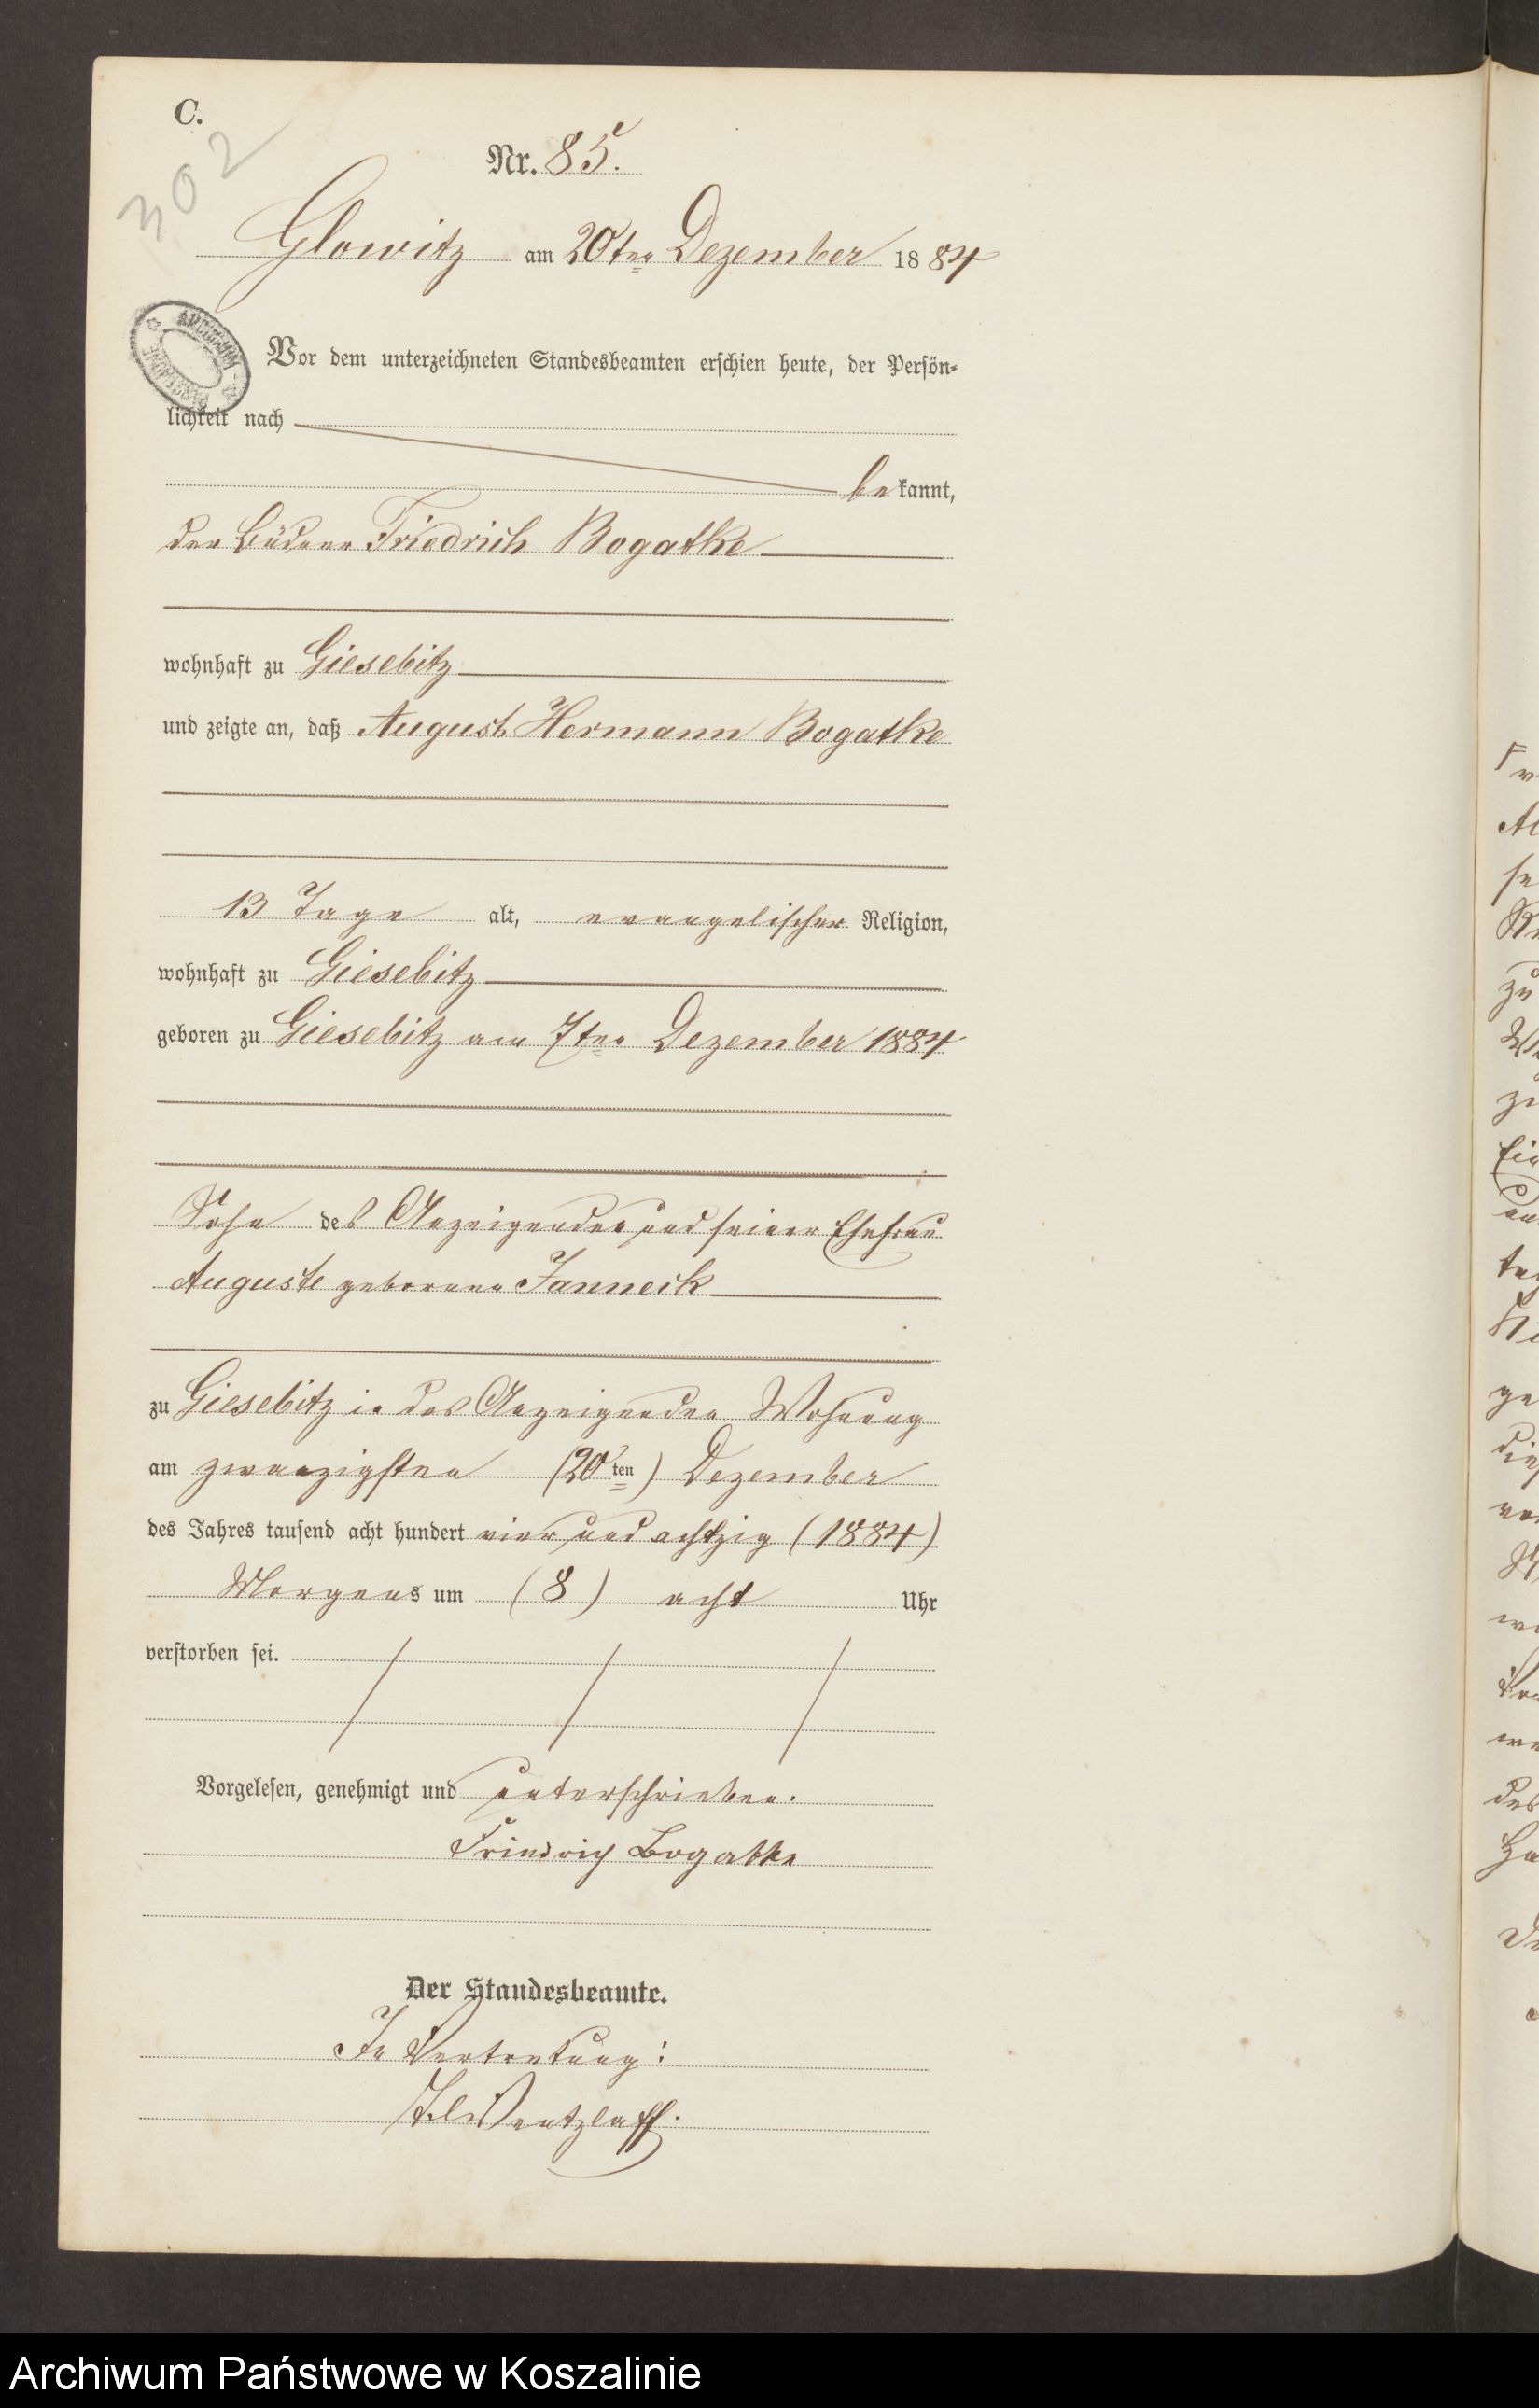 C.
302
Nr. 85.
Glowitz am 20ten Dezember 1884
Vor dem unterzeichneten Standesbeamten erschien heute, der Persön-
lichkeit nach
bekannt,
der Büdner Friedrich Bogatke
wohnhaft zu Giesebitz
und zeigte an, daß August Hermann Bogatke
13 Tage alt, evangelischer Religion,
wohnhaft zu Giesebitz
geboren zu Giesebitz am 7ten Dezember 1884
Sohn des Anzeigenden und seiner Ehefrau
Auguste geborene Janneck
zu Giesebitz in des Anzeigenden Wohnung
am zwanzigsten (20ten) Dezember
des Jahres tausend acht hundert vier und achtzig (1884)
Morgens um (8) acht Uhr
verstorben sei.
Vorgelesen, genehmigt und unterschrieben.
Friedrich Bogatke
Der Standesbeamte.
In Vertretung:
Wentzlaff.
Archiwum Państwowe w Koszalinie